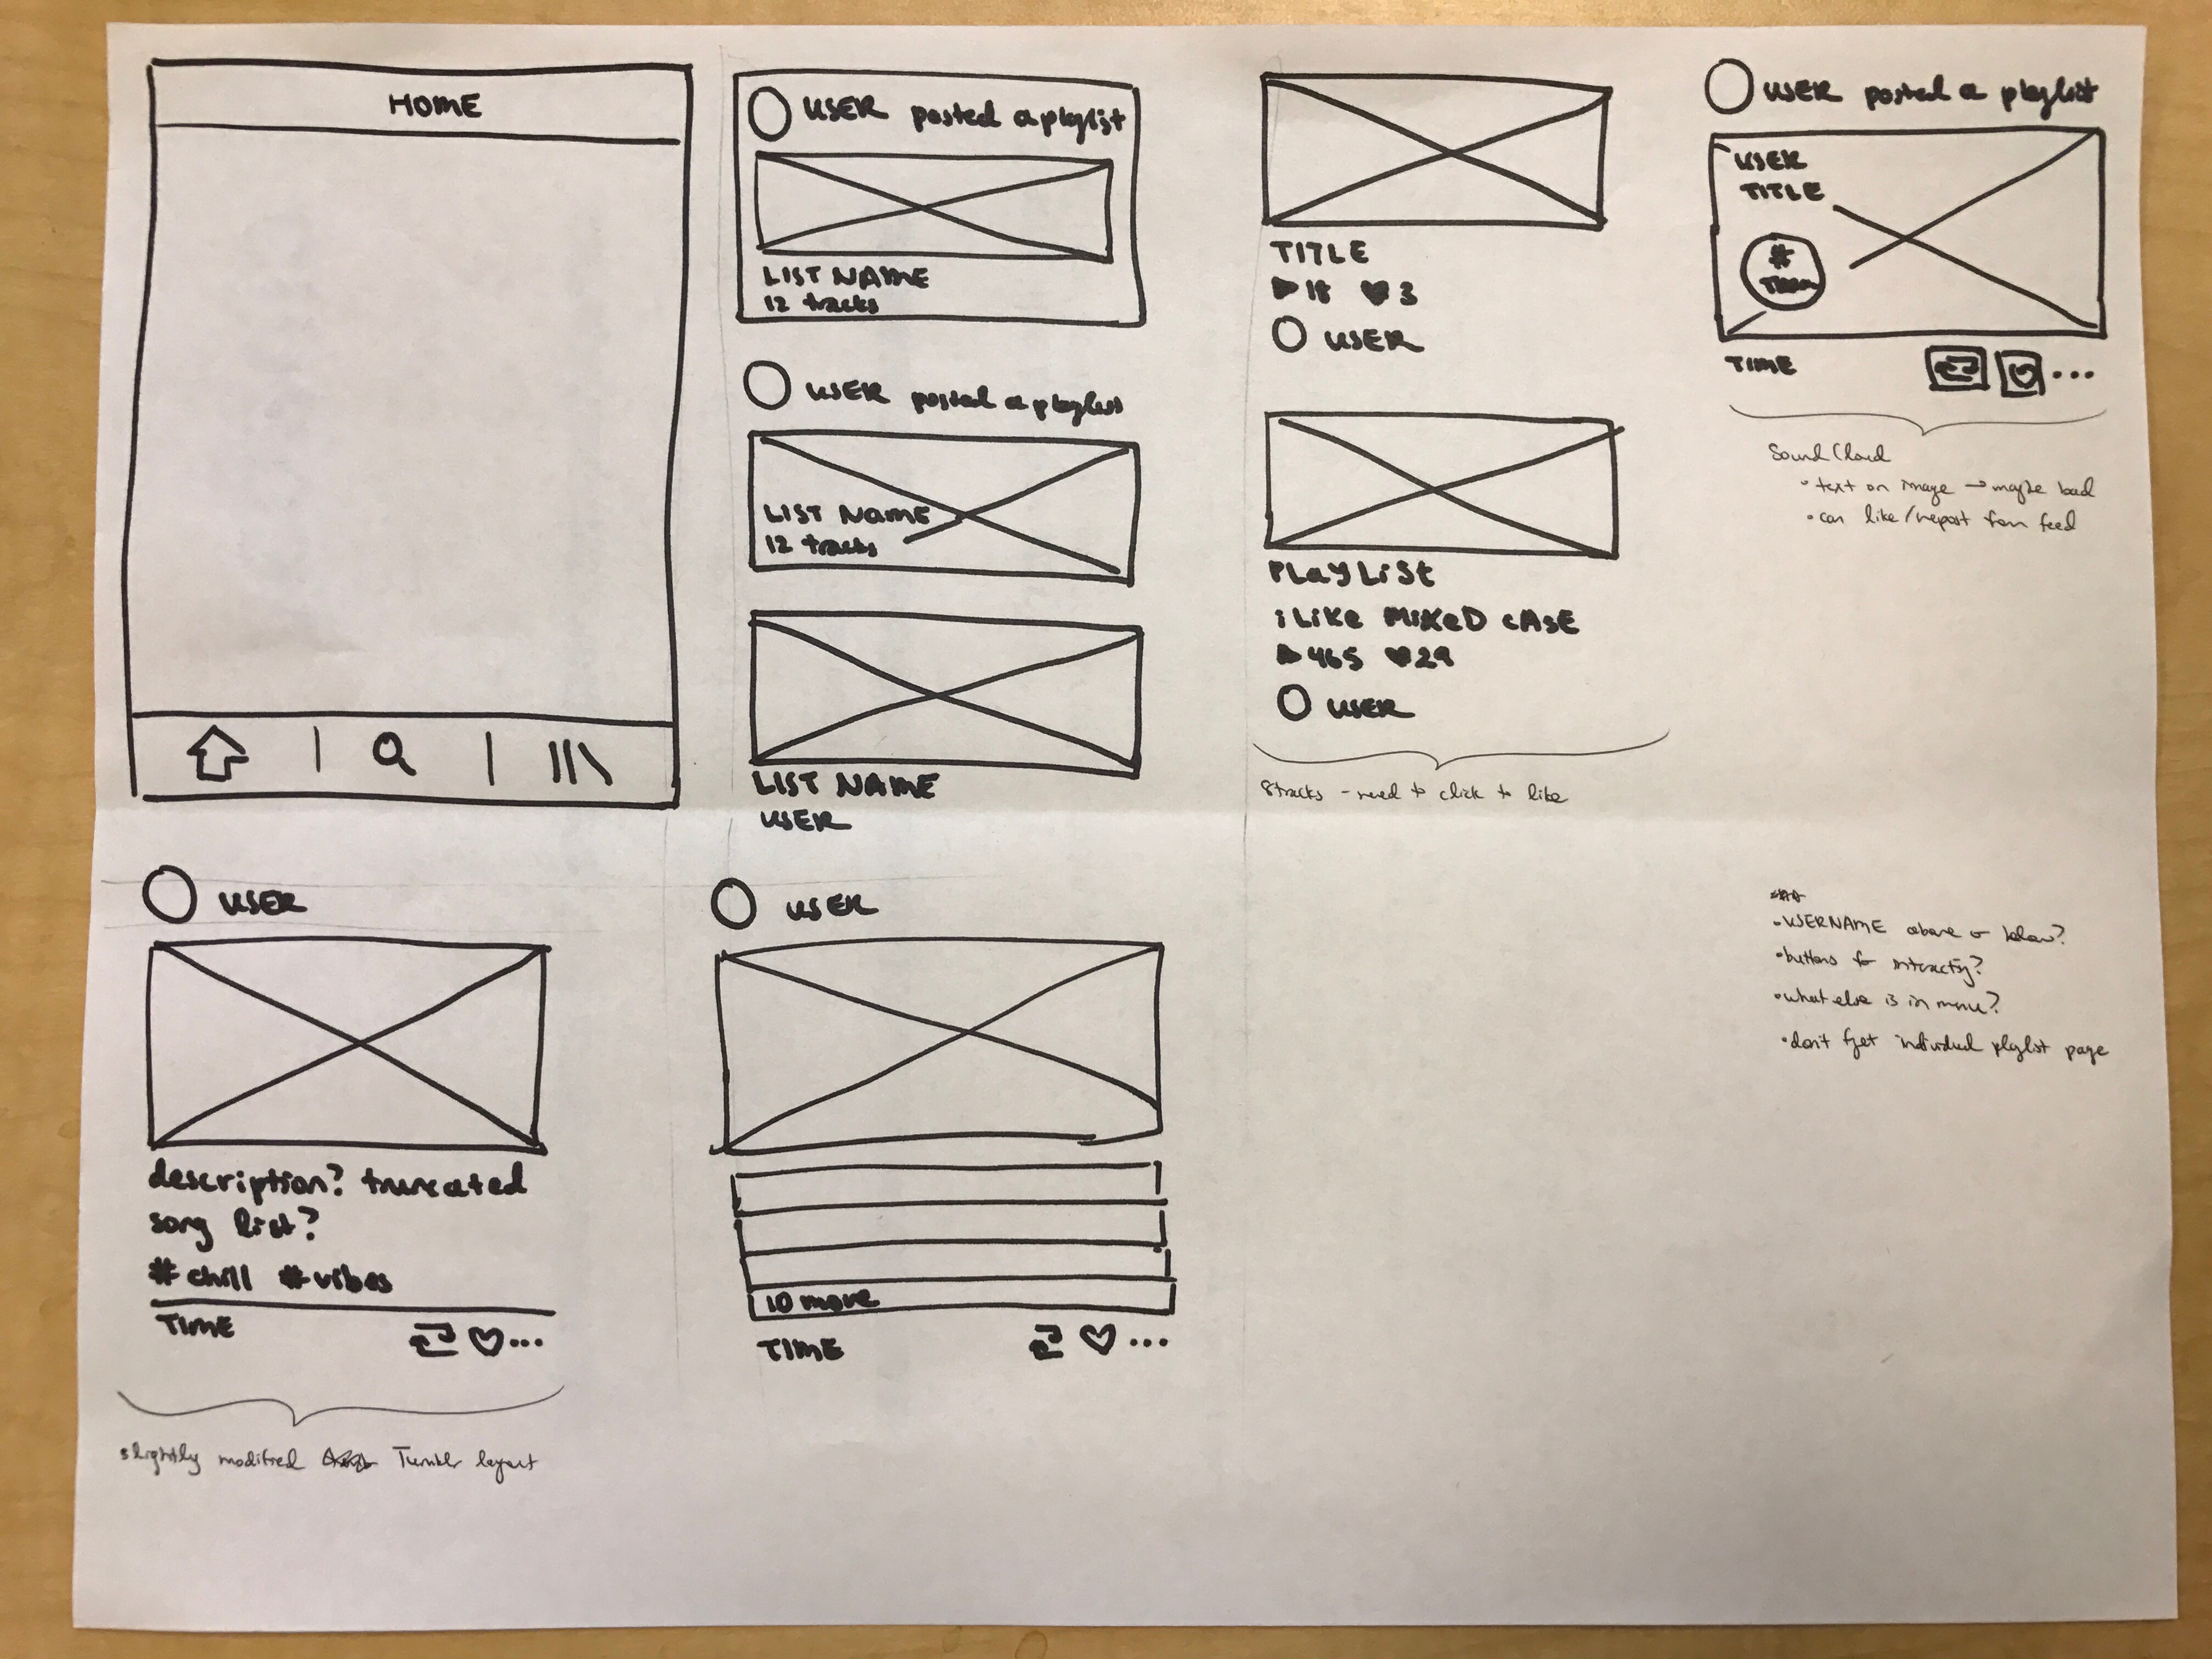 HOME
USER posted a playlist
LIST NAME
12 tracks
USER posted a playlist
LIST NAME
12 tracks
LIST NAME
USER
TITLE
18 3
USER
PLAYLiSt
iLiKe MiXeD cAsE
465 29
USER
8tracks - need to click to like
USER posted a playlist
USER
TITLE
#
TIME
...
SoundCloud
• text on image → maybe bad
• can like/repost from feed
USER
description? truncated
song list?
#chill #vibes
TIME
...
slightly modified Tumblr layout
USER
10 more
TIME
...
• USERNAME above or below?
• buttons for interacting?
• what else is in menu?
• don't forget individual playlist page